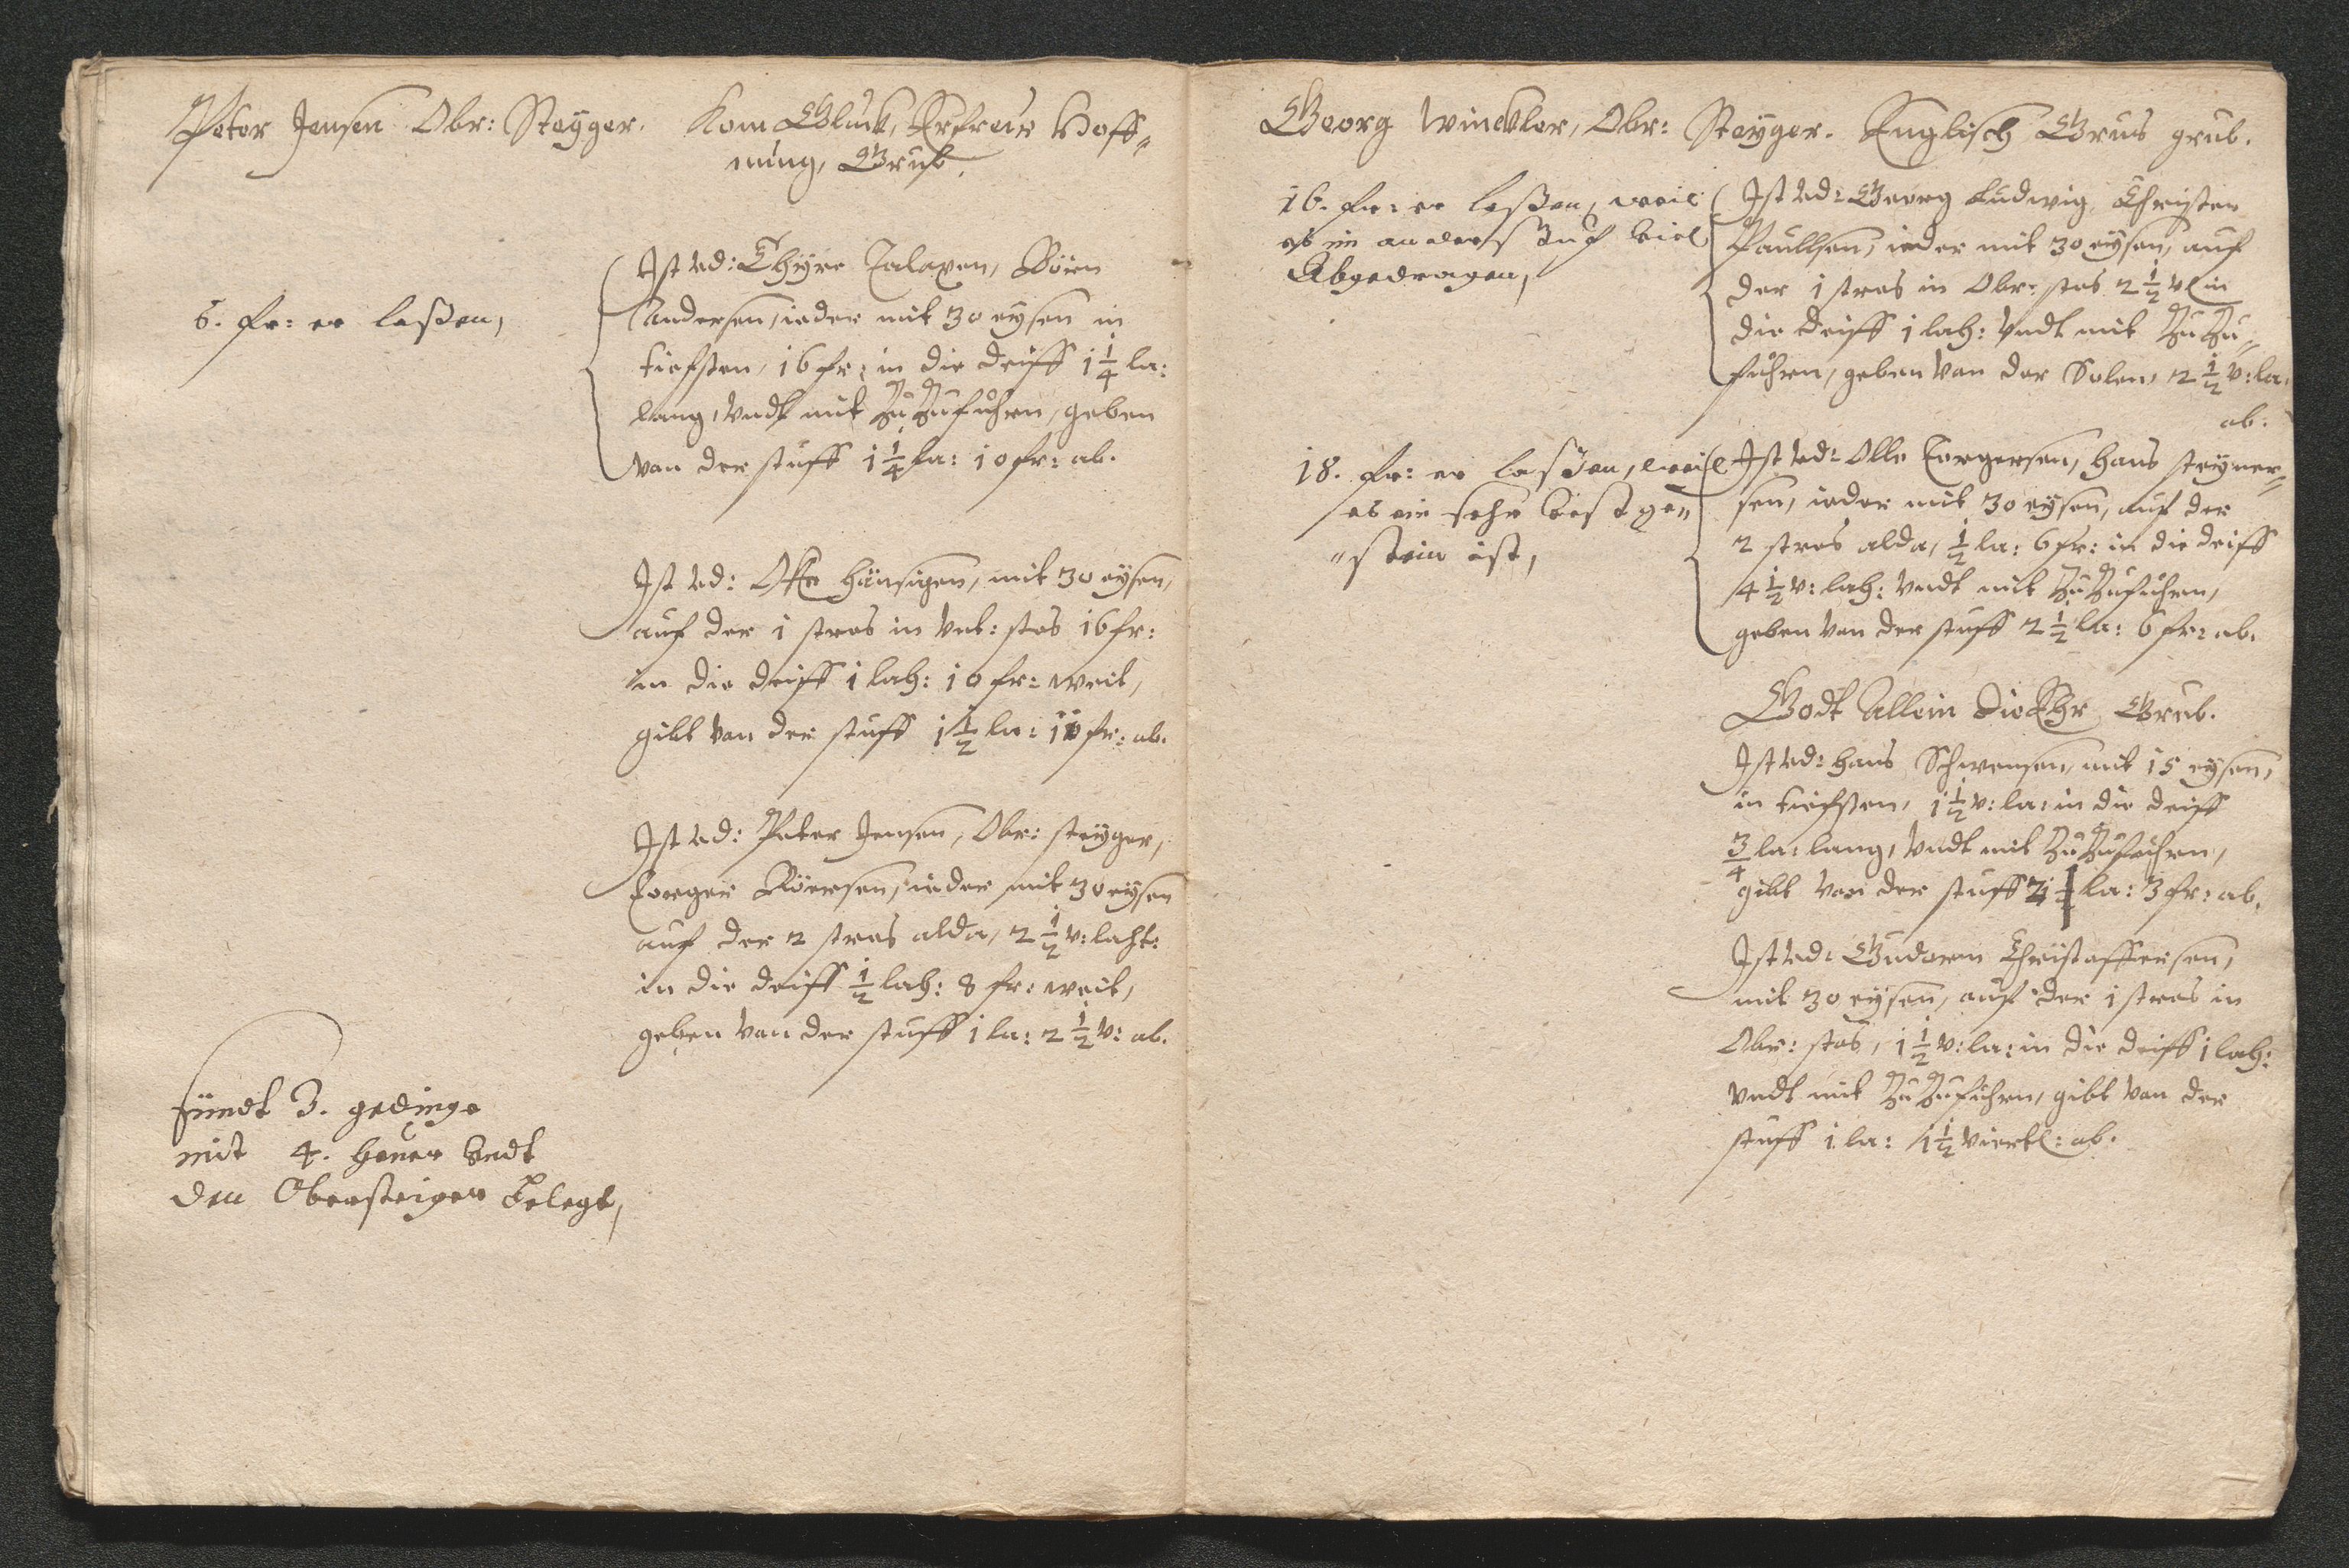 Peter Jensen Obr: Steyger. Kom Glück, Erfreue Hoff„
nung, Grub.
6. fr: er laßen,
Ist ad: Thyre Talaxen, Böien
Andersen, ieder mit 30 eysen in
tiefsten, 16 fr: in die deiff 1 1/4 la:
lang, vndt mit Zu Zuführen, geben
von der stuff 1 1/4 la: 10 fr: ab.
Ist ad: Olle Hänsigen, mit 30 eysen,
auf der 1 stras in Vnt: stos 16 fr:
in die deiff 1 lah: 10 fr: weit,
gibt van der stuff 1 1/2 la: fr: ab.
Ist ad: Peter Jensen, Obr: steyger,
Torger Röersen, ieder mit 30 eysen
auf der 2 stras alda, 2 1/2 v: lacht:
in die deiff 1/2 lah: 8 fr: weit,
geben van der stuff 1 la: 2 1/2 v: ab.
sündt 3. gedinge
mit 4. heuer vndt
den Obersteiger belegt,
Georg Winckler, Obr: Steyger. Englisch Grus grub.
16. fr: er laßen, weil
es im anderstuf viel
Abgedragen,
Ist ad: Georg Ludwig, Christen
Paullsen, ieder mit 30 eysen, auf
der 1 stras in Obr: stos 2 1/2 v in
die deiff 1 lah: vndt mit Zu Zu„
führen, geben van der Solen, 2 1/2 v: la:
ab.
18. fr: er laßen, weil
es ein sehr vest ge„
„stein ist,
Ist ad: Olle Torgersen, Hans steyner„
sen, ieder mit 30 eysen, auf der
2 stras alda, 1/2 la: 6 fr: in die deiff
4 1/2 v: lah: vndt mit Zu Zuführen,
geben van der stuff 2 1/2 la: 6 fr: ab.
Godt Allein die Ehr Grub.
Ist ad: Hans Schwensen, mit 15 eysen,
in tiefsten, 1 1/2 v: la: in die deiff
3/4 la: lang, vndt mit Zu Zuführen,
gibt van der stuff la: 3 fr: ab.
Ist ad: Gudorm Christoffersen,
mit 30 eysen, auf der 1 stras in
Obr: stos, 1 1/2 v: la: in die deiff 1 lah:
vndt mit Zu Zuführen, gibt van der
stuff 1 la: 1 1/2 viertl: ab.